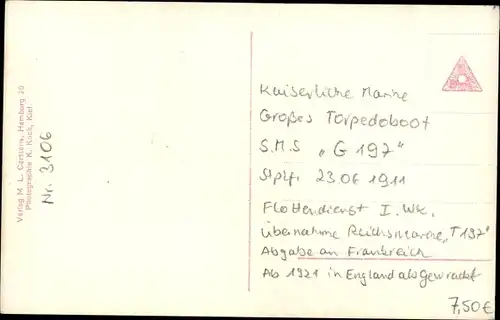 Verlag M. L. Carstens, Hamburg 30
Photographie K. Kock, Kiel.
Nr. 3106
Kaiserliche Marine
Großes Torpedoboot
S.M.S „G 197"
Stplf. 23.06 1911
Flottendienst I. Wk.
Übernahme Reichsmarine „T197"
Abgabe an Frankreich
Ab 1921 in England abgewrackt
7,50€